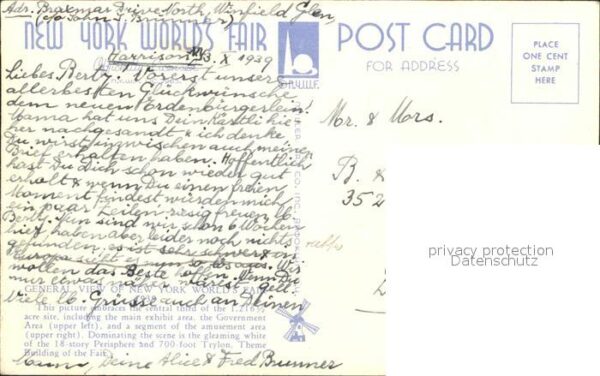 Adr. Braxmar Drive North, Winfield Glen,
(c/o John J. Brunner)
NEW YORK WORLD'S FAIR
POST CARD
FOR ADDRESS
PLACE
ONE CENT
STAMP
HERE
Harrison NY 3. X 1939
N.Y.W.F.
Liebes Berty. Vorerst unsere
allerbesten Glückwünsche
dem neuen Erdenbürgerlein!
Mama hat uns Dein Kärtli hie-
her nachgesandt & ich denke
Du wirst inzwischen auch meinen
Brief erhalten haben. Hoffentlich
hast Du Dich schon wieder gut
erholt & wenn Du einen freien
Moment findest würden mich
ein paar Zeilen riesig freuen lb.
Berty. Nun sind wir schon 6 Wochen
hier, haben aber leider noch nichts
gefunden, es ist sehr schwer & in
Europa sieht es nun so aus. Wir
wollen das Beste hoffen. Wenn Du
nur etwas näher wärest gell.
Viele lb. Grüsse auch an Deinen
Mann, Deine Alice & Fred Brunner
Mr. & Mrs.
B. &
352
privacy protection
Datenschutz
GENERAL VIEW OF NEW YORK WORLD'S FAIR
1939
This picture embraces the central third of the 1,216½
acre site, including the main exhibit area, the Government
Area (upper left), and a segment of the amusement area
(upper right). Dominating the scene is the gleaming white
of the 18-story Perisphere and 700-foot Trylon, Theme
Building of the Fair.